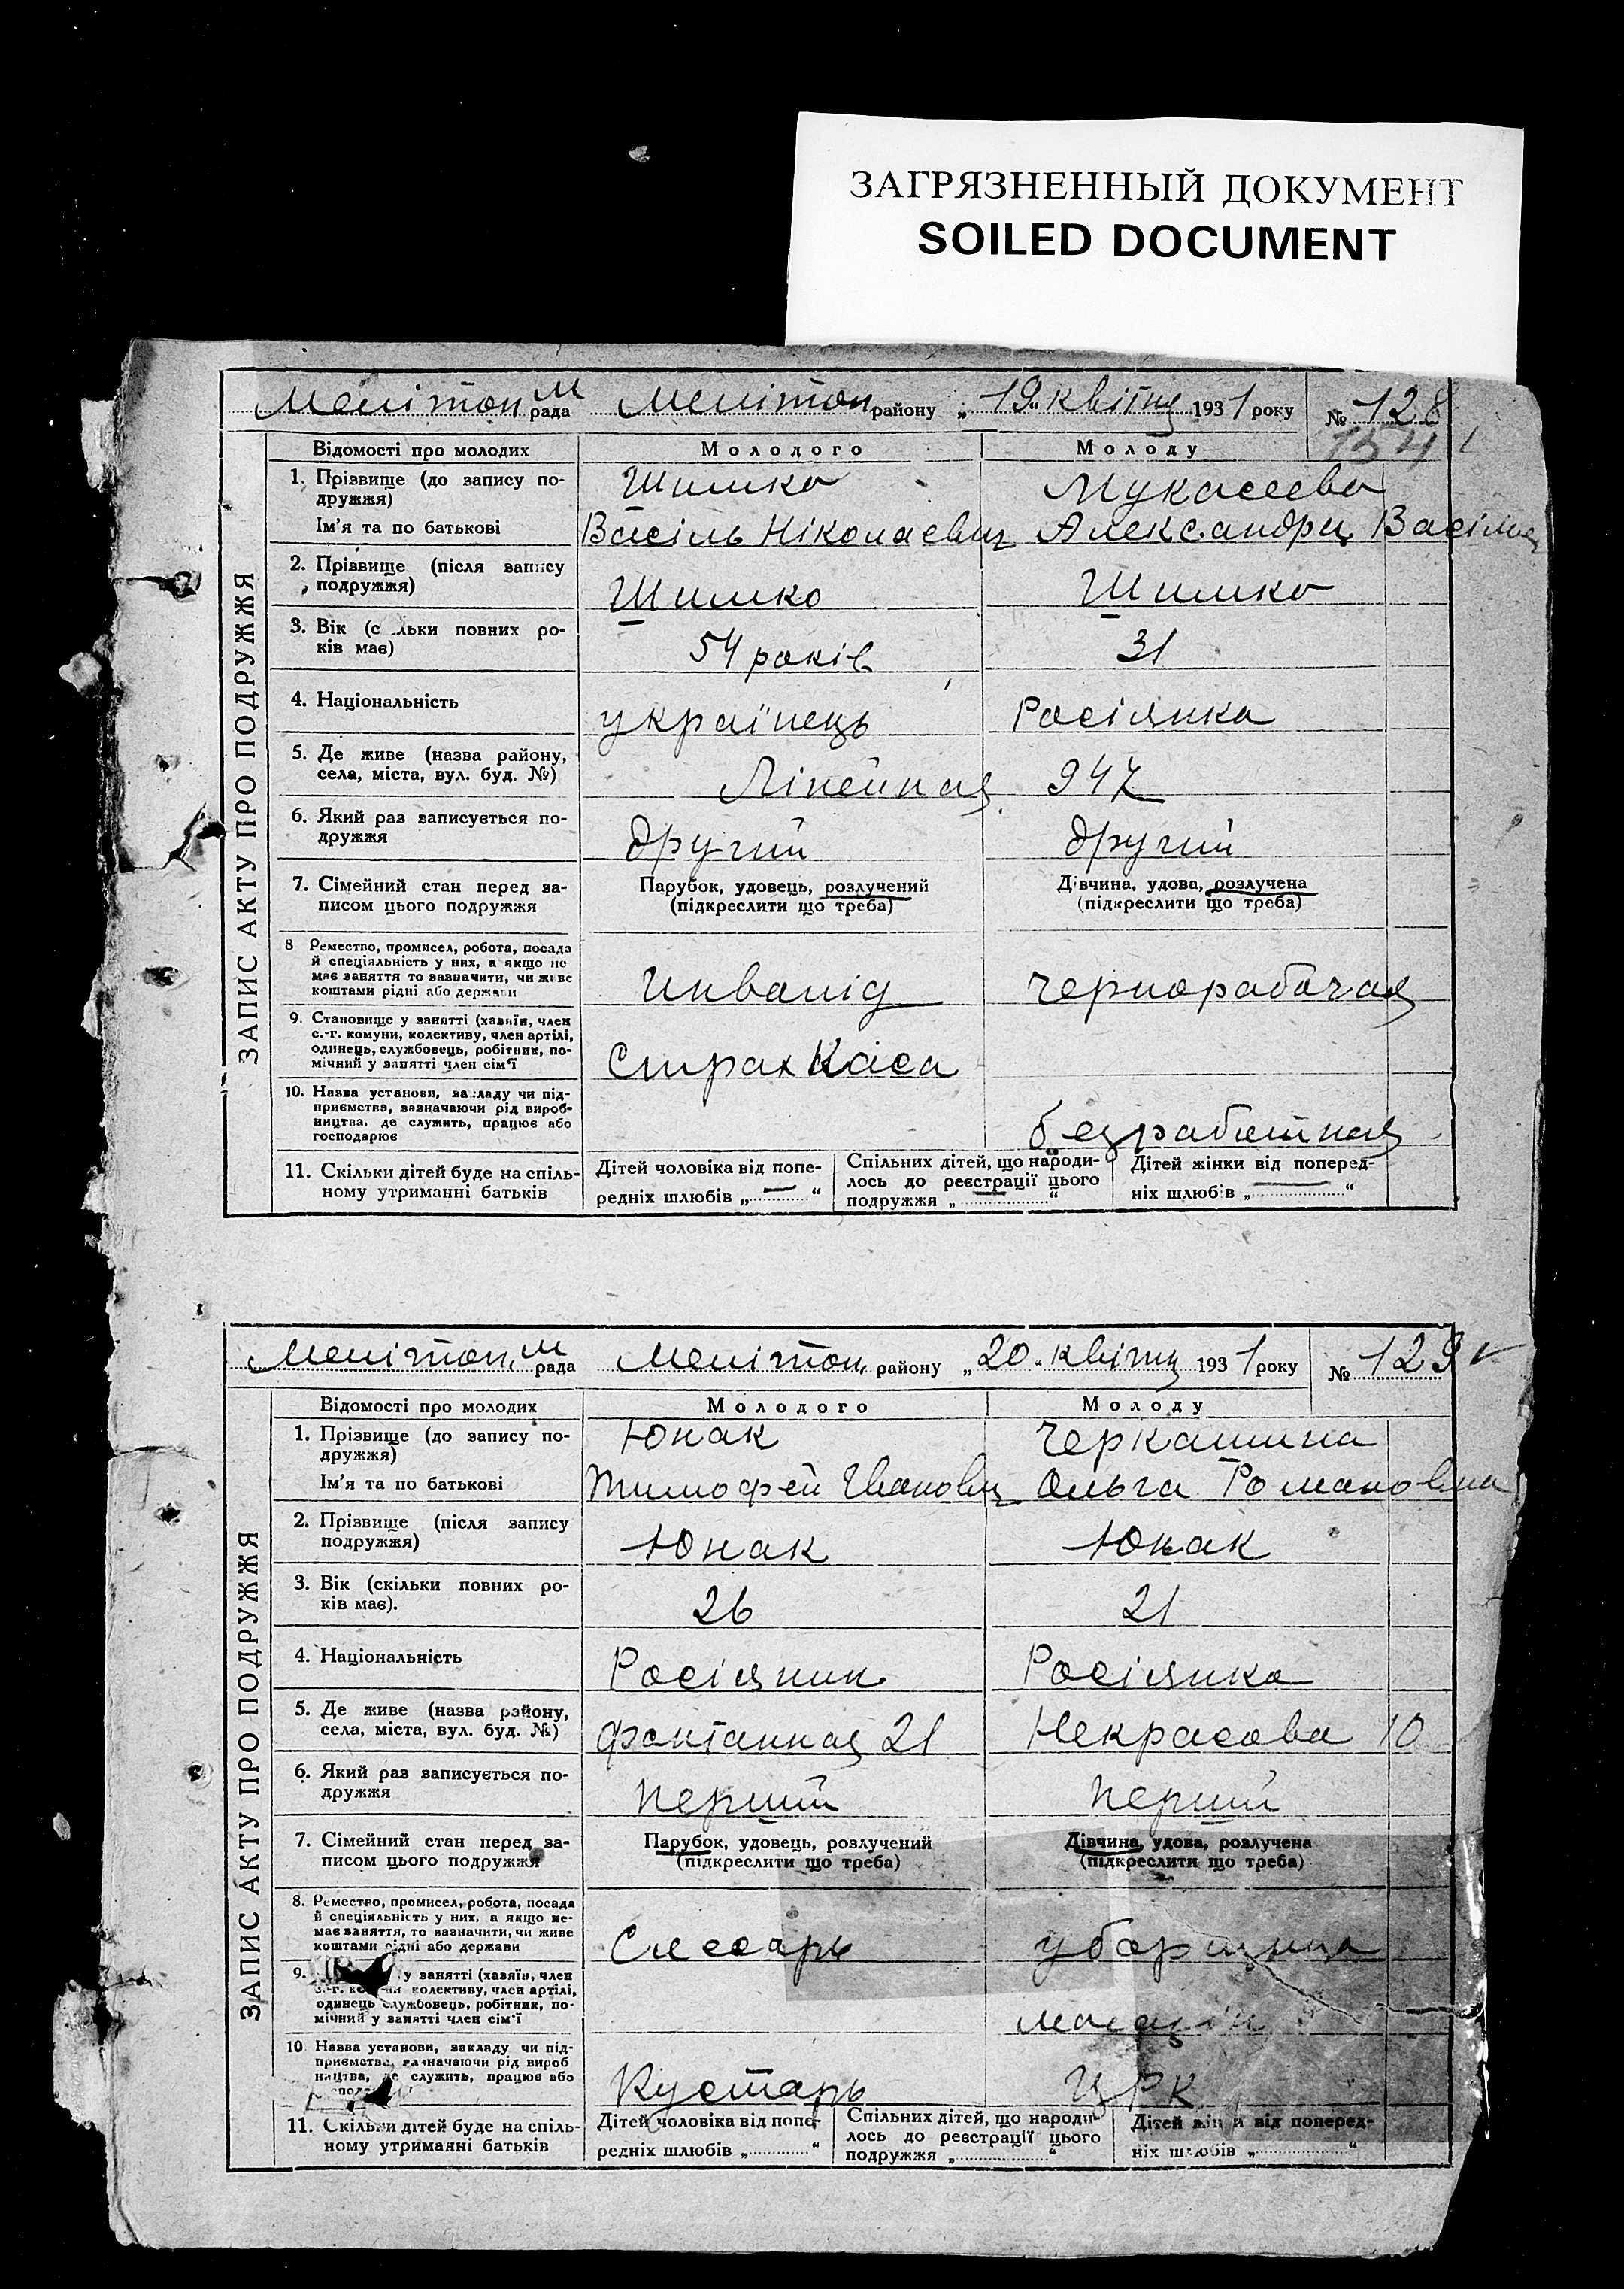 ЗАГРЯЗНЕННЫЙ ДОКУМЕНТ
SOILED DOCUMENT
Мелітоп м рада Мелітоп району „19“ квітня 1931 року № 128
154
Відомості про молодих Молодого Молоду
1. Прізвище (до запису по-
дружжя) Шишко Мукасеева
Ім'я та по батькові Васіль Ніколаевич Александра
2. Прізвище (після запису
подружжя) Шишко Шишко
3. Вік (с льки повних ро-
ків має) 54 років 31
4. Національність українець Росіянка
5. Де живе (назва району,
села, міста, вул. буд. №) Лінейная 947
6. Який раз записується по-
дружжя другий другий
7. Сімейний стан перед за-
писом цього подружжя
Парубок, удовець, розлучений
(підкреслити що треба)
Дівчина, удова, розлучена
(підкреслити що треба)
8 Ремество, промисел, робота, посада
й спеціяльність у них, а якщо не
має заняття то зазначити, чи живе
коштами рідні або держави
Инвалід чернорабочая
9. Становище у занятті (хазяїн, член
с.-г. комуни, колективу, член артілі,
одинець, службовець, робітник, по-
мічний у занятті член сім'ї
Страх Каса
10. Назва установи, закладу чи під-
приємства, зазначаючи рід вироб-
ництва, де служить, працює або
господарює
безработная
11. Скільки дітей буде на спіль-
ному утриманні батьків
Дітей чоловіка від попе-
редніх шлюбів „ — “
Спільних дітей, що народи-
лось до реєстрації цього
подружжя „ — “
Дітей жінки від поперед-
ніх шлюбів „ — “
ЗАПИС АКТУ ПРО ПОДРУЖЖЯ
Мелітоп. м рада Мелітоп. району „20“ квітня 1931 року № 129 v
Відомості про молодих Молодого Молоду
1. Прізвище (до запису по-
дружжя) Юнак Черкашина
Ім'я та по батькові Тимофей Іванович Ольга Романовна
2. Прізвище (після запису
подружжя) Юнак Юнак
3. Вік (скільки повних ро-
ків має). 26 21
4. Національність Росіянин Росіянка
5. Де живе (назва району,
села, міста, вул. буд. №) Фонтанная 21 Некрасова 10
6. Який раз записується по-
дружжя перший перший
7. Сімейний стан перед за-
писом цього подружжя
Парубок, удовець, розлучений
(підкреслити що треба)
Дівчина, удова, розлучена
(підкреслити що треба)
8. Ремество, промисел, робота, посада
й спеціяльність у них, а якщо не-
має заняття, то зазначити, чи живе
коштами рідні або держави
Слесарь уборщица
9. у занятті (хазяїн, член
с.-г. комуни колективу, член артілі,
одинець службовець, робітник, по-
мічний у занятті член сім'ї
10 Назва установи, закладу чи під-
приємства, зазначаючи рід вироб
ництва, де служить, працює або
Кустарь ЦРК
11. Скільки дітей буде на спіль-
ному утриманні батьків
Дітей чоловіка від попе-
редніх шлюбів „ “
Спільних дітей, що народи-
лось до реєстрації цього
подружжя „ “
Дітей жінки від поперед-
ніх шлюбів „ “
ЗАПИС АКТУ ПРО ПОДРУЖЖЯ